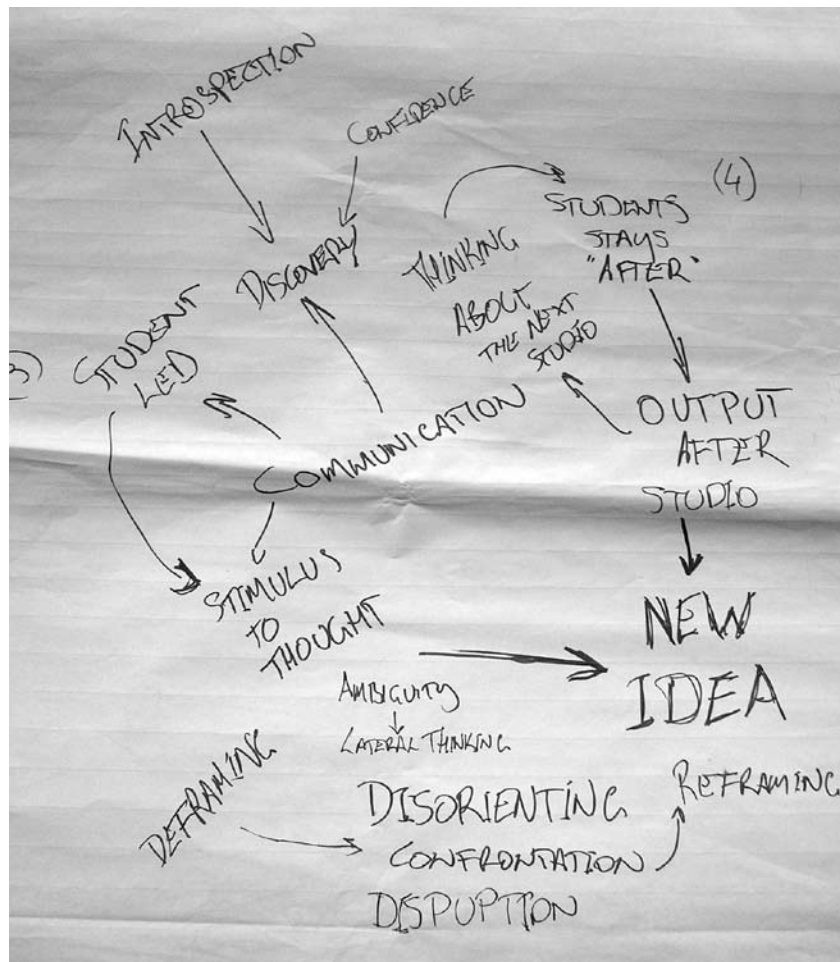 INTROSPECTION
CONFIDENCE
(4)
STUDENTS
STAYS
"AFTER"
DISCOVERY
THINKING
ABOUT
THE NEXT
STUDIO
3)
STUDENT
LED
COMMUNICATION
OUTPUT
AFTER
STUDIO
STIMULUS
TO
THOUGHT
NEW
IDEA
AMBIGUITY
LATERAL THINKING
DEFRAMING
DISORIENTING
CONFRONTATION
DISPUPTION
REFRAMING